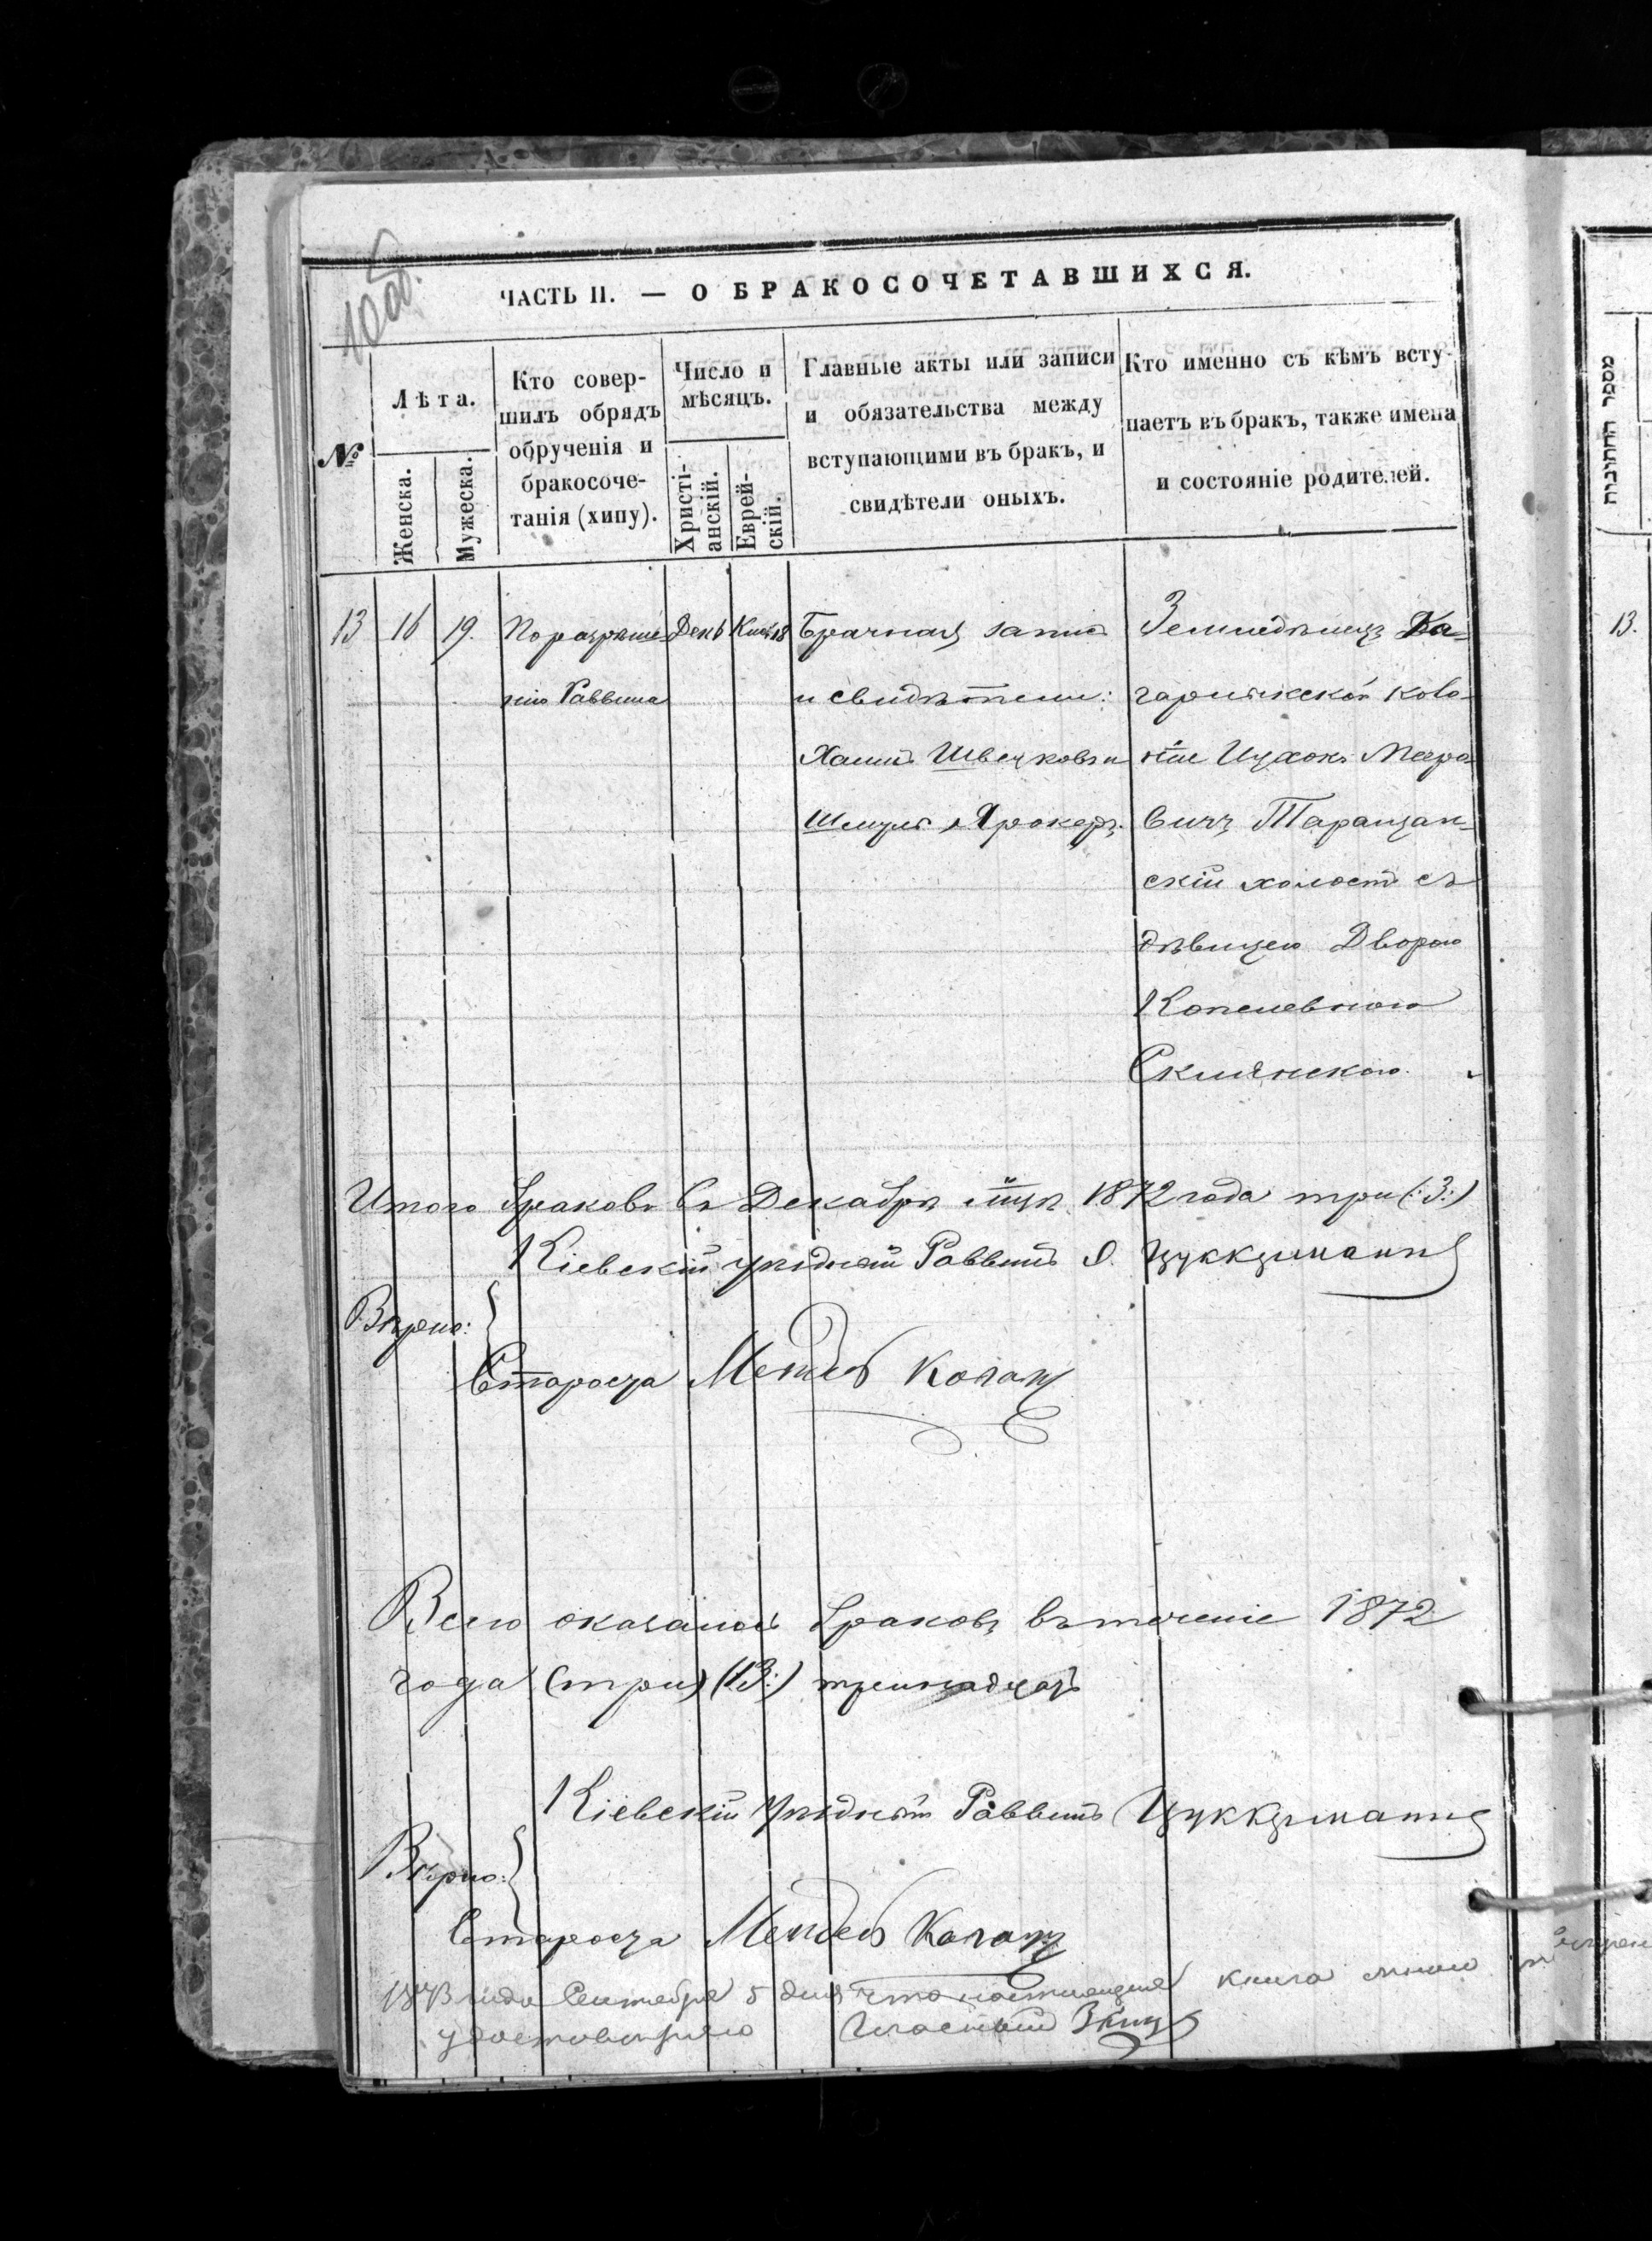 10 об.
ЧАСТЬ II. — О БРАКОСОЧЕТАВШИХСЯ.
№
Лѣта.
Женска.
Мужеска.
Кто совер-
шилъ обрядъ
обрученія и
бракосоче-
танія (хипу).
Число и
мѣсяцъ.
Христі-
анскій.
Еврей-
скій.
Главные акты или записи
и обязательства между
вступающими въ бракъ, и
свидѣтели оныхъ.
Кто именно съ кѣмъ всту-
паетъ въ бракъ, также имена
и состояніе родителей.
13
16
19.
По разрѣше-
нію Раввина
Дек 6
18
Брачная запись
и свидѣтели:
Хаимъ Швецковъ и
Шмуль
Земледѣлецъ Ка-
гарлыкской коло-
ніи Ицхокъ Меро-
вичъ Таращан-
скій холостъ съ
дѣвицею Дворою
Копелевною
Склянскою.
Итого браковъ въ Декабрѣ мцѣ 1872 года три (:3:)
Кіевскій уѣздный Раввинъ Цуккерманъ
Вѣрно:
Староста Мендель Коган
Всего оказалось браковъ въ теченіе 1872
года (три) (13:) тринадцать
Кіевскій Уѣздный Раввинъ Цуккерманъ
Вѣрно:
Староста Мендель Коган
1873 года Сентября 5 дня что настоящая книга мною
удостовѣряю
מספר החתונות
13.